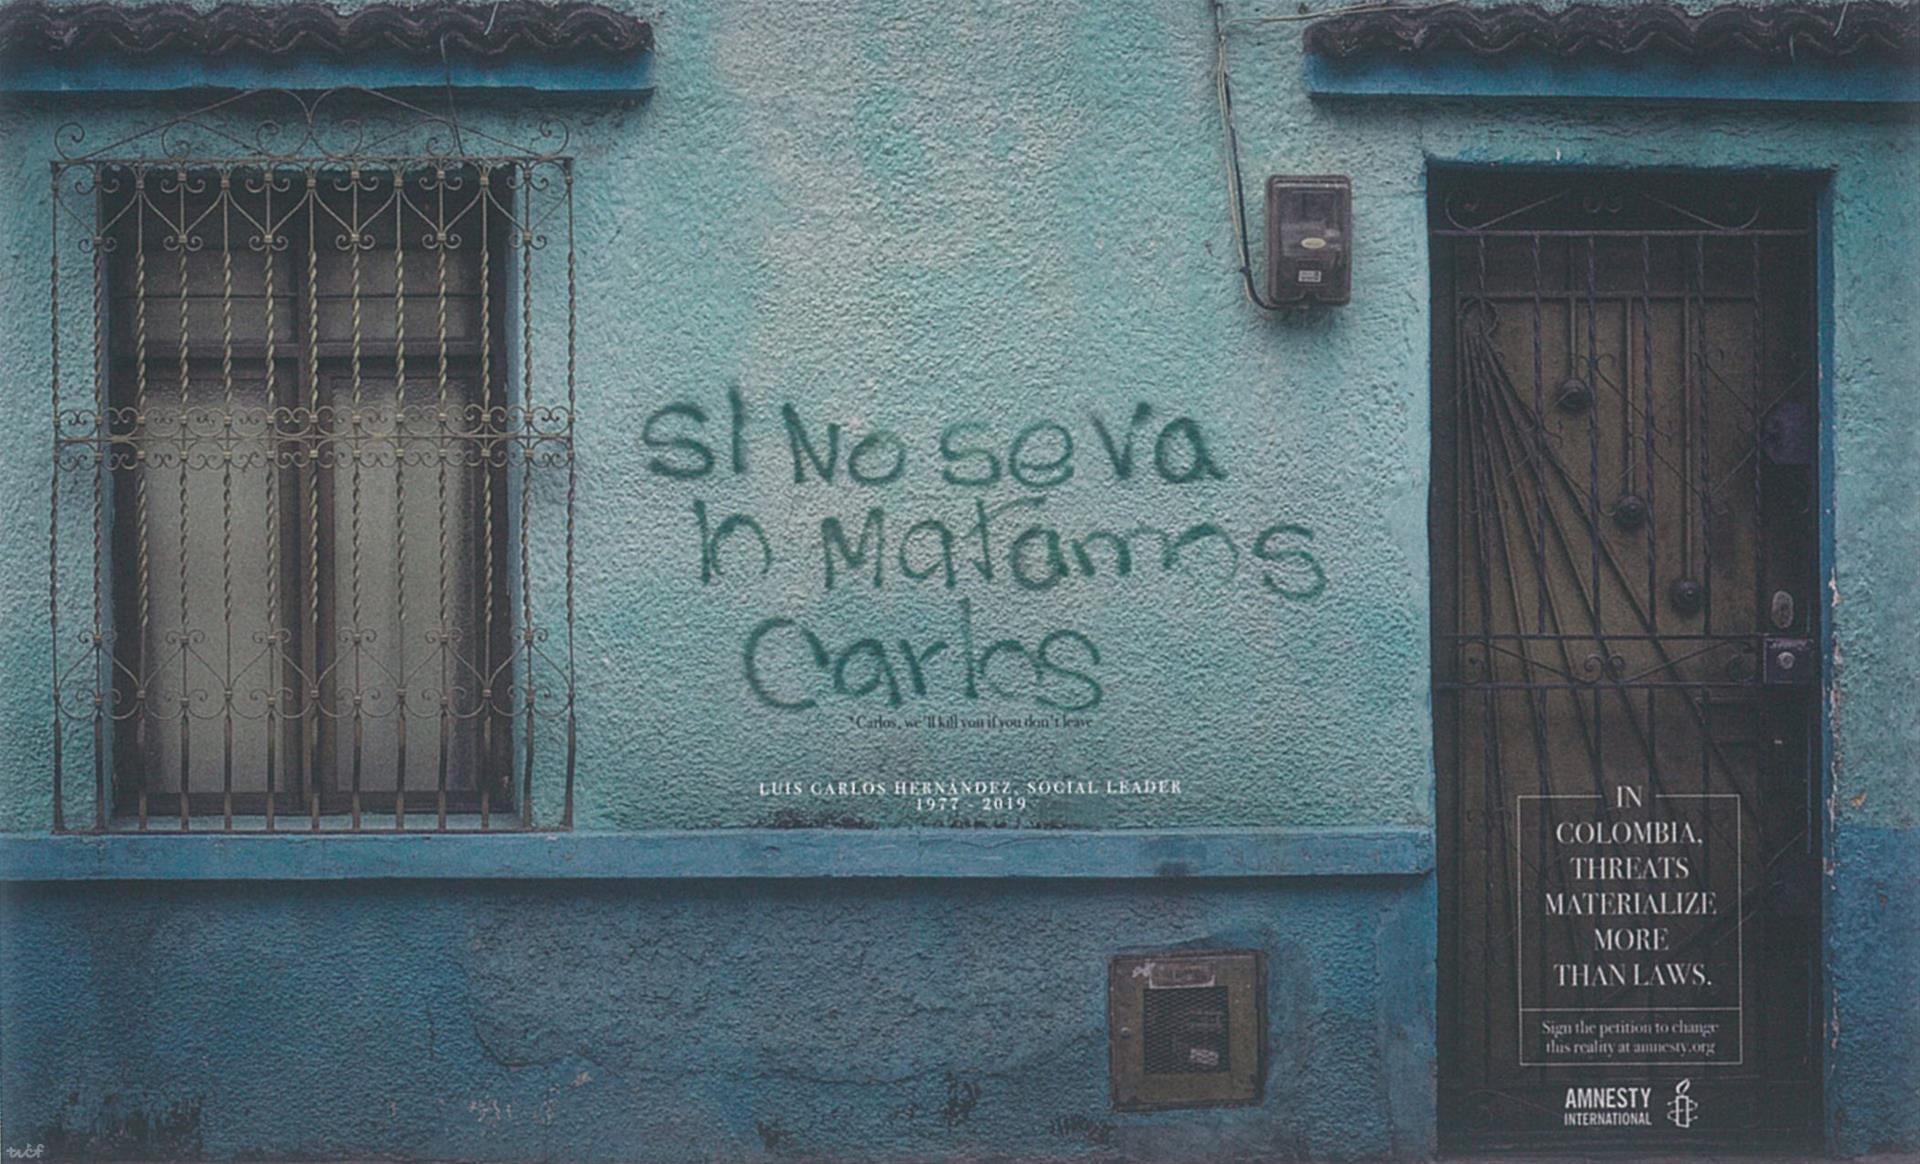 SI No se va
lo Matamos
Carlos
*Carlos, we'll kill you if you don't leave
LUIS CARLOS HERNÁNDEZ, SOCIAL LEADER
1977 - 2019
IN
COLOMBIA,
THREATS
MATERIALIZE
MORE
THAN LAWS.
Sign the petition to change
this reality at amnesty.org
AMNESTY
INTERNATIONAL